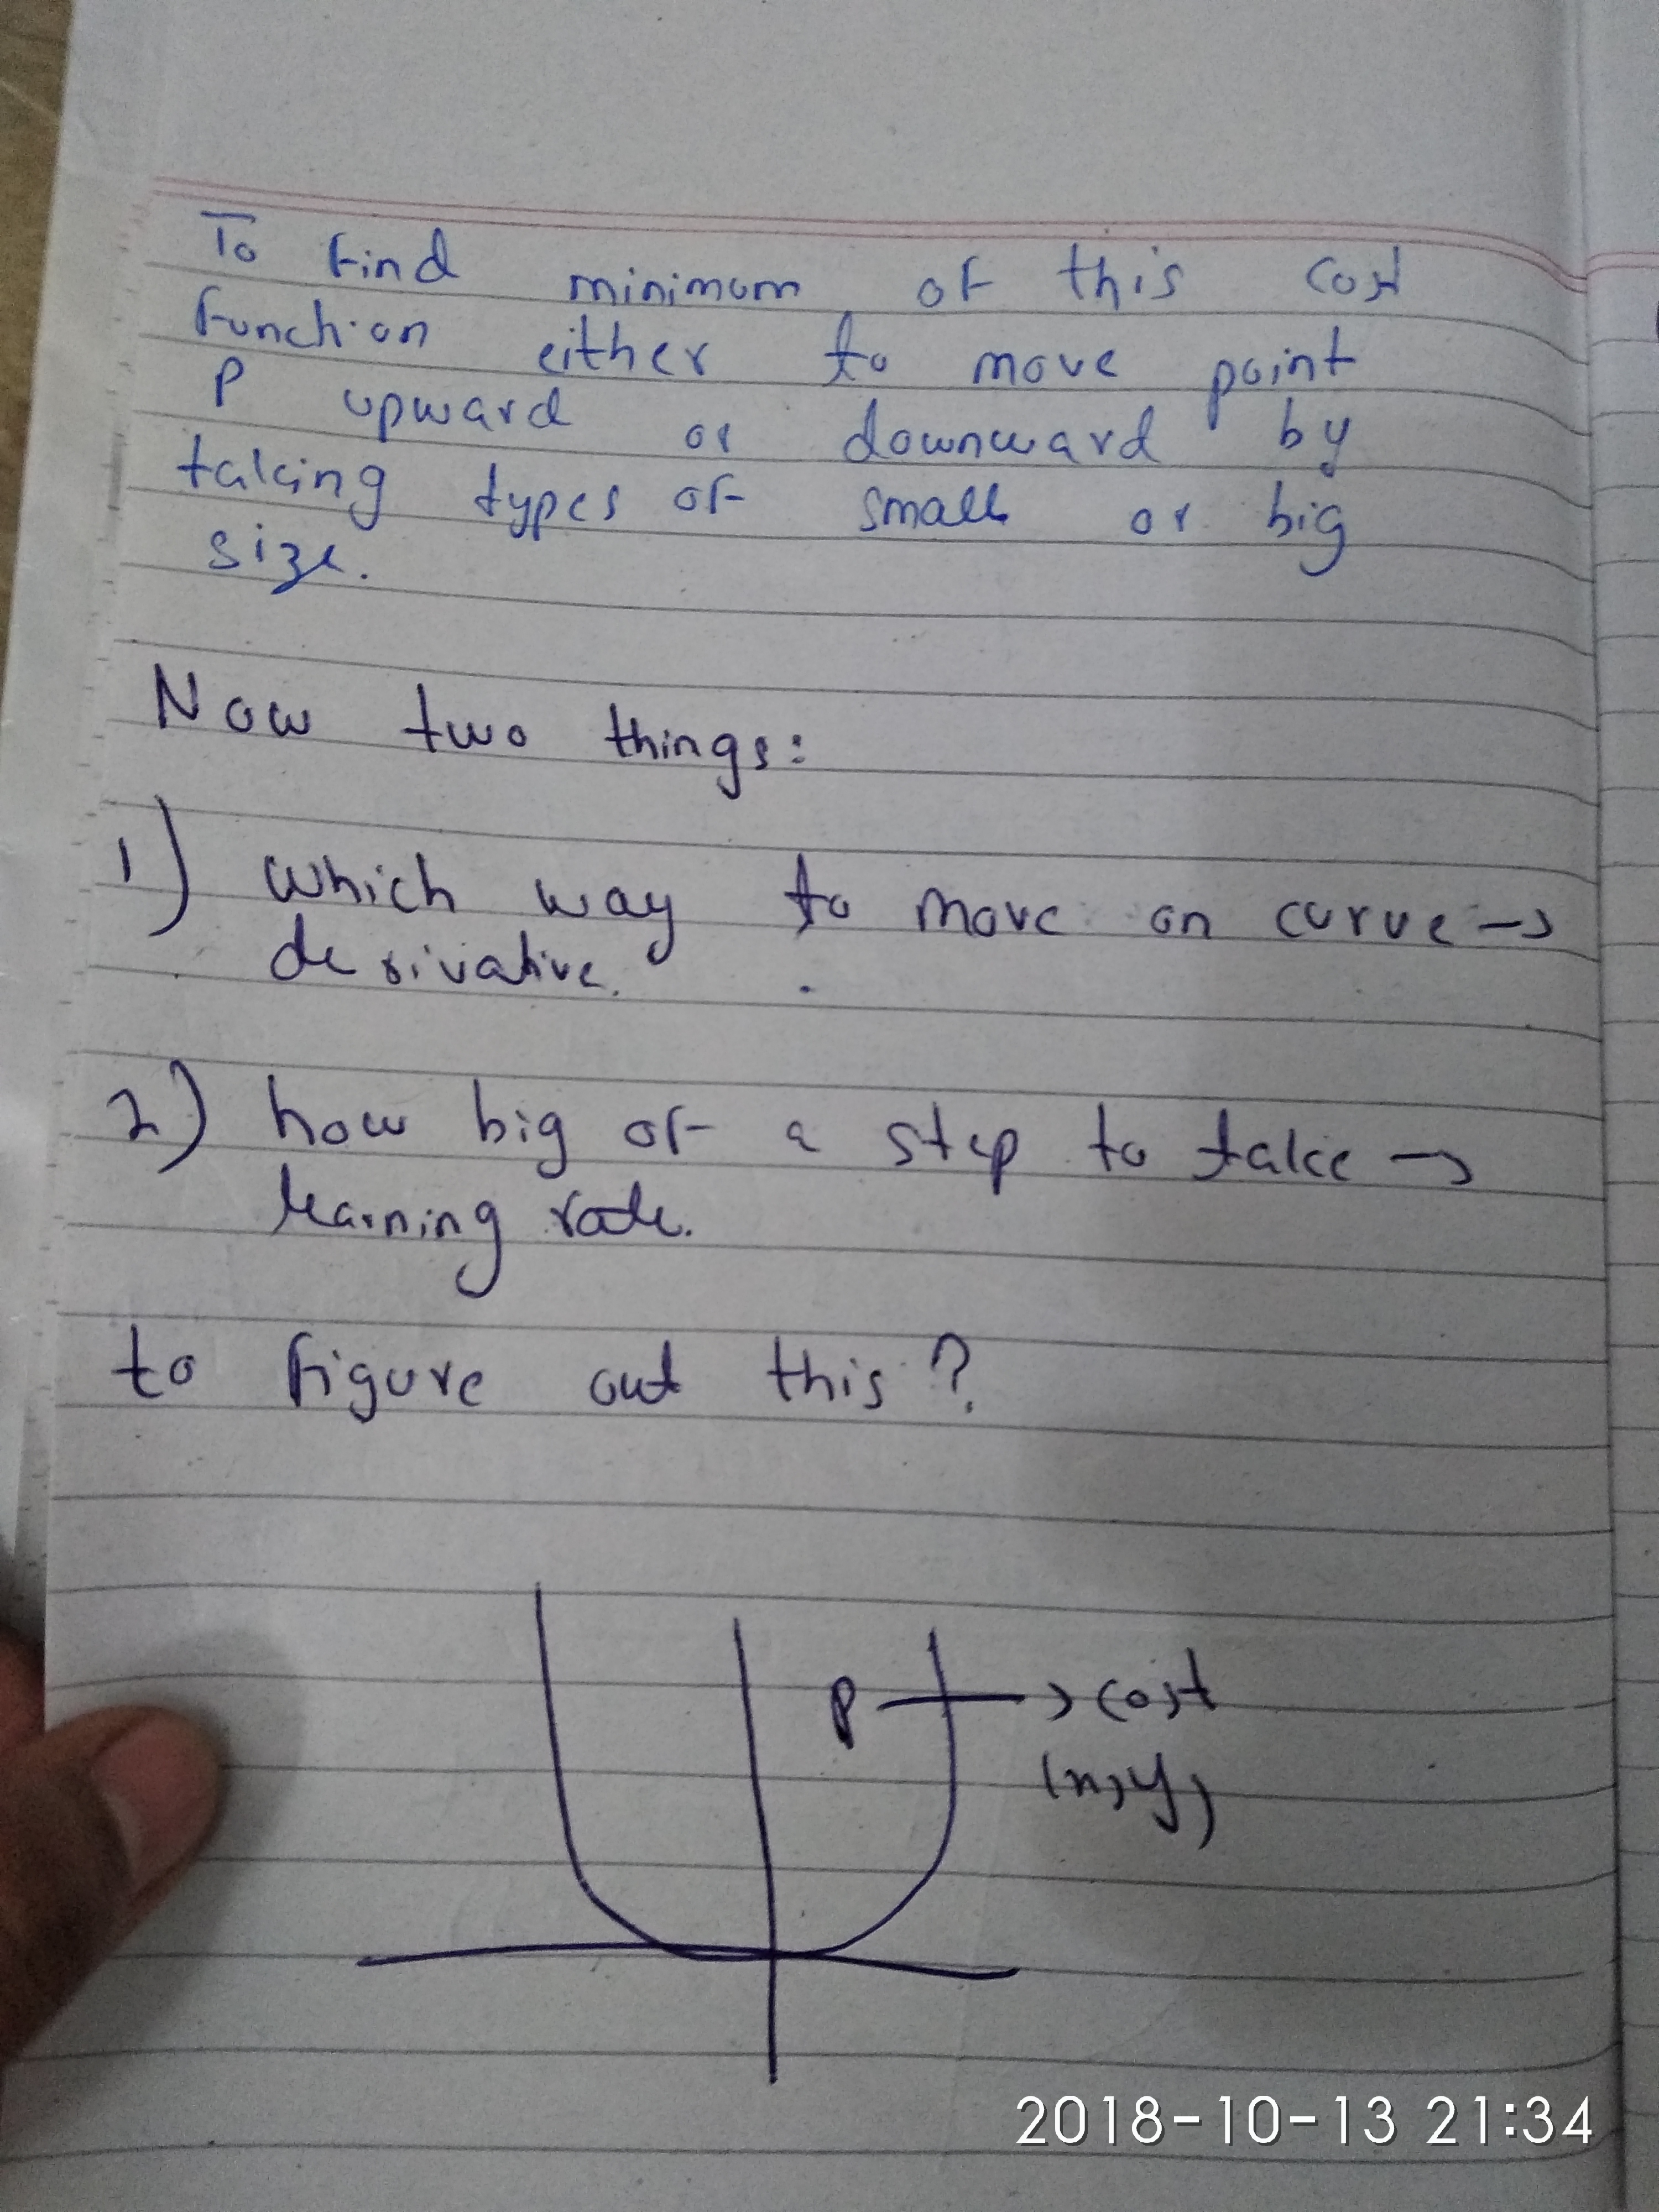 To find minimum of this cost
function either to move point
P upward or downward by
taking types of small or big
size.
Now two things:
1) which way to move on curve →
derivative.
2) how big of a step to take →
learning rate.
to figure out this?
P → cost
(x,y)
2018-10-13 21:34